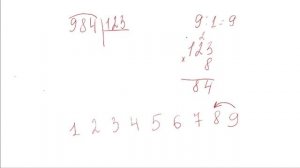 984 123
9:1=9
2
123
× 8
84
1 2 3 4 5 6 7 8 9